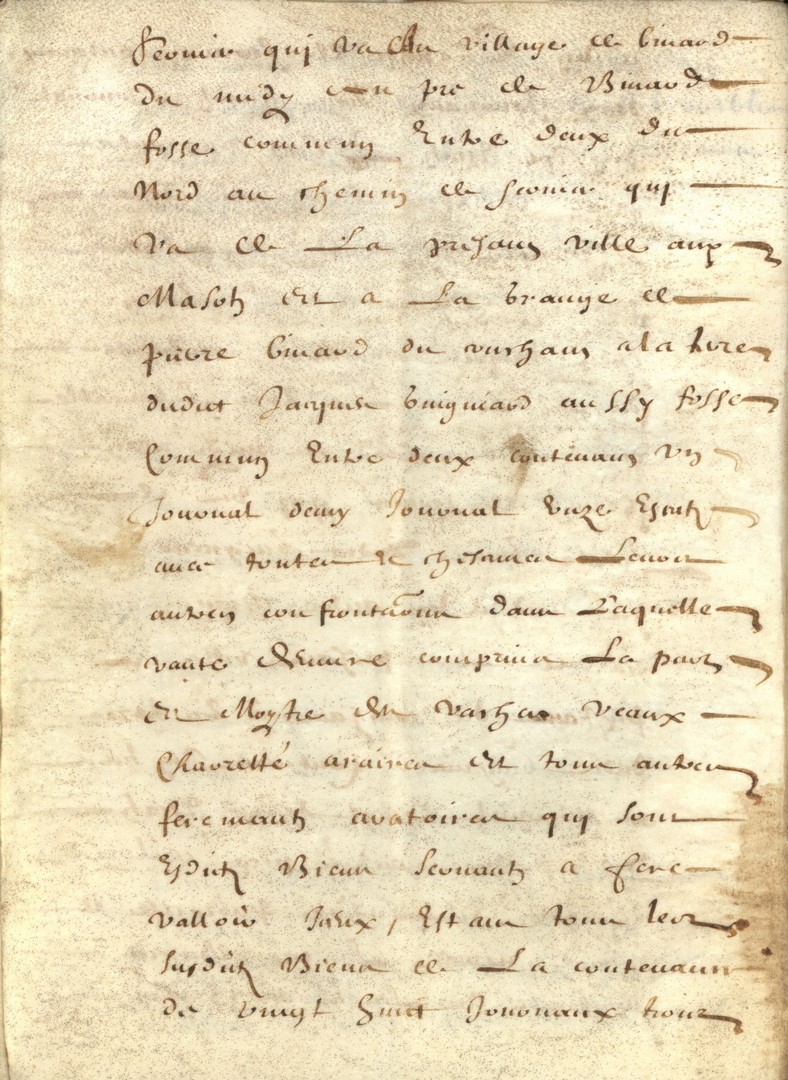 servis qui va du village de binard
du midy au pre de Binard
fosse commun Entre deux du
Nord au chemin de servis qui
va de La presant ville aux
Masotz Et a La Grange de
pierre binard du couchant a la terre
dudict Jacques buigniard aussy fosse
Commun Entre deux contenant un
Journal demy Journal unze Escatz
avec toutes Et chescunes Leurs
autres confrontaõns dans Laquelle
vante demeure comprins La part
Et Moytie des vaches veaux
Charretté araires Et tous autres
feremantz aratoires qui sont
Esditz Biens servantz a fere
valloir Jceux, Estans tous leos
susditz Biens de La contenans
de vingt huict Journaux trois